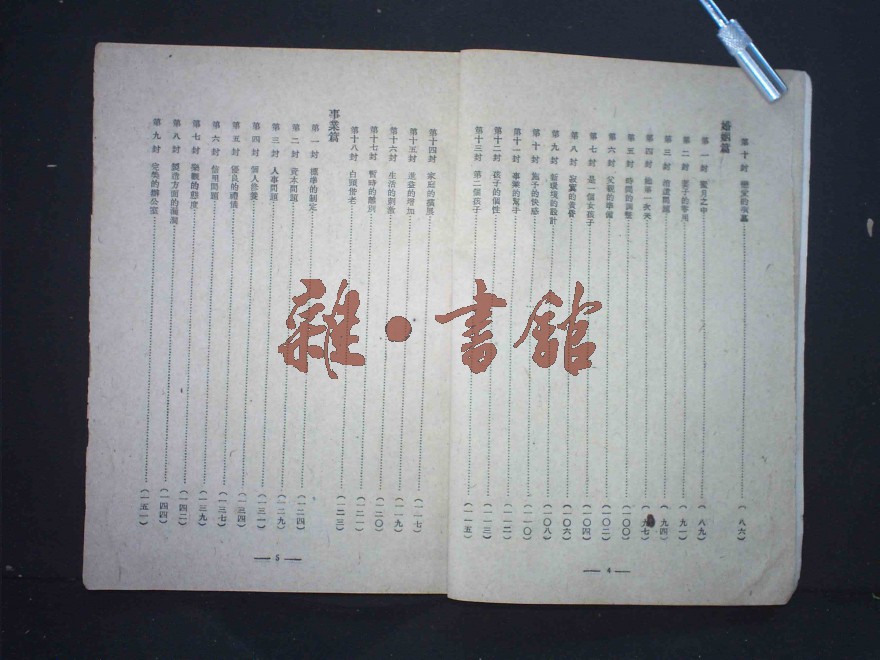 第十封 戀愛的氛圍 (八六)
婚姻篇
第一封 蜜月之中 (八九)
第二封 妻子的零用 (九一)
第三封 (九四)
第四封 她第一次哭 (九七)
第五封 時間的調整 (一〇〇)
第六封 父親的準備 (一〇二)
第七封 是一個女孩子 (一〇四)
第八封 寂寞的黃昏 (一〇六)
第九封 新環境的設計 (一〇八)
第十封 施予的快感 (一一〇)
第十一封 事業的幫手 (一一二)
第十二封 孩子的個性 (一一三)
第十三封 第二個孩子 (一一五)
— 4 —
第十四封 家庭的擴展 (一一七)
第十五封 進益的增加 (一一九)
第十六封 生活的刺激 (一二〇)
第十七封 暫時的離別 (一二一)
第十八封 白頭偕老 (一二三)
事業篇
第一封 標準的制定 (一二四)
第二封 資本問題 (一二九)
第三封 人事問題 (一三一)
第四封 個人修養 (一三四)
第五封 優良的禮儀 (一三七)
第六封 信用問題 (一三九)
第七封 樂觀的態度 (一四二)
第八封 製造方面的漏洞 (一四四)
第九封 完美的辦公室 (一五一)
— 5 —
雜·書館